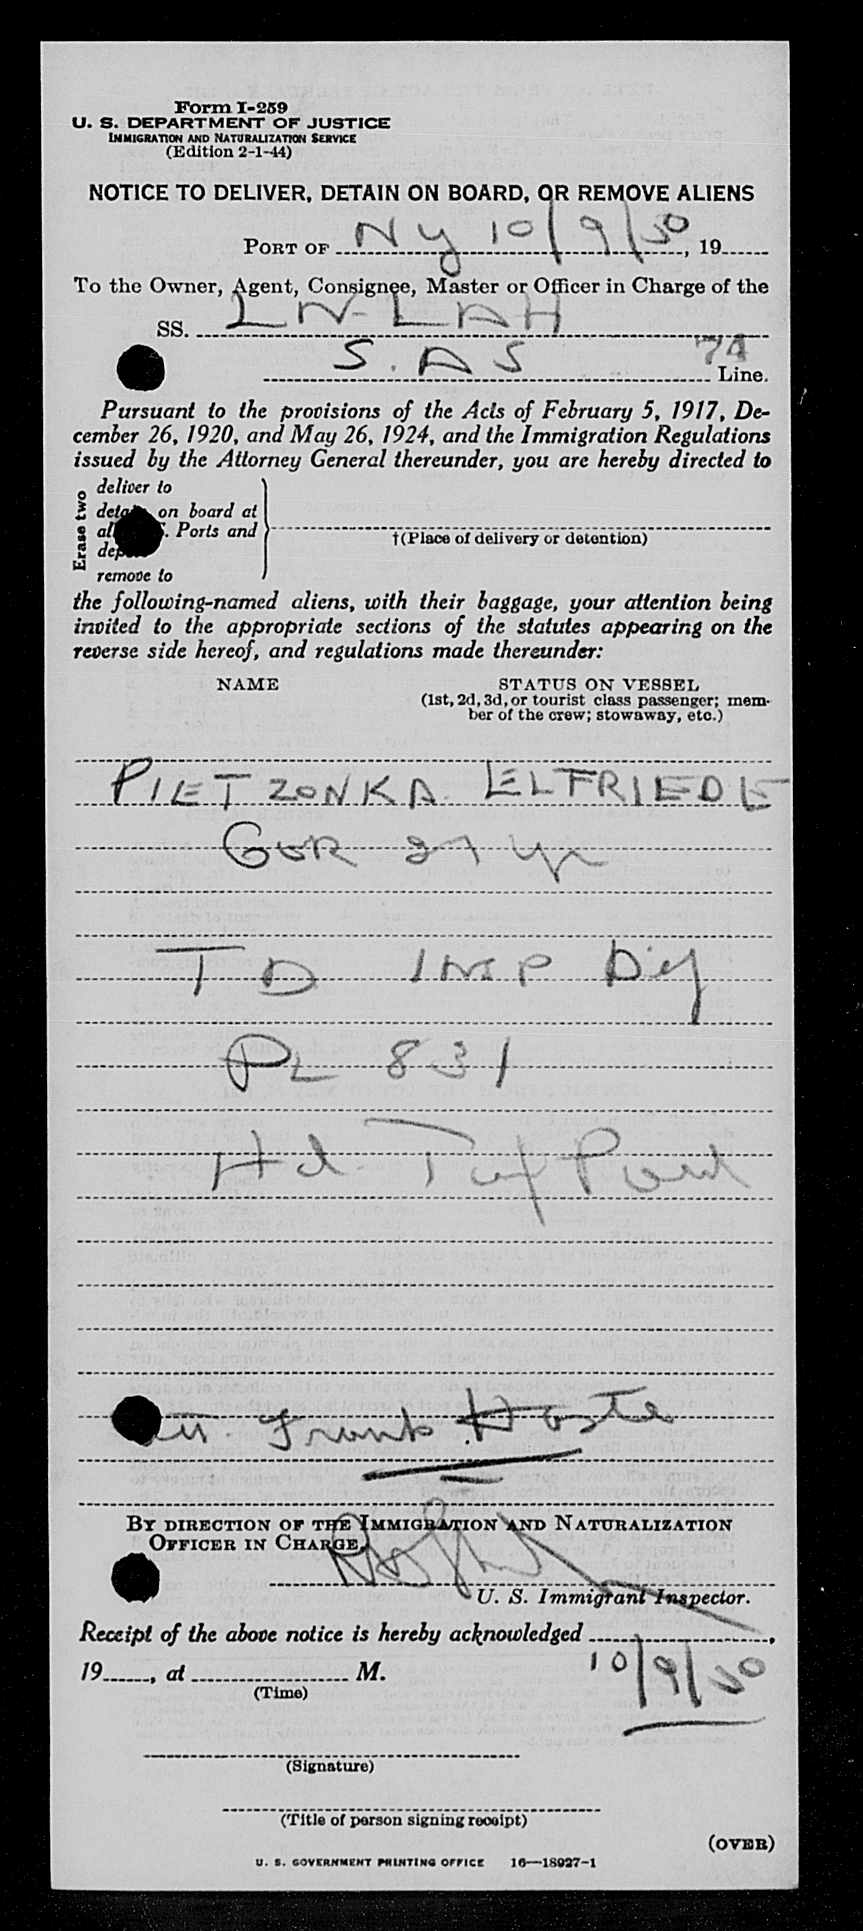 Form I-259
U. S. DEPARTMENT OF JUSTICE
IMMIGRATION AND NATURALIZATION SERVICE
(Edition 2-1-44)
NOTICE TO DELIVER, DETAIN ON BOARD, OR REMOVE ALIENS
PORT OF NY 10/9/50, 19
To the Owner, Agent, Consignee, Master or Officer in Charge of the
SS. LN-LAH
S.AS 74 Line.
Pursuant to the provisions of the Acts of February 5, 1917, De-
cember 26, 1920, and May 26, 1924, and the Immigration Regulations
issued by the Attorney General thereunder, you are hereby directed to
Erase two
deliver to
on board at
Ports and
remove to
†(Place of delivery or detention)
the following-named aliens, with their baggage, your attention being
invited to the appropriate sections of the statutes appearing on the
reverse side hereof, and regulations made thereunder:
NAME STATUS ON VESSEL
(1st, 2d, 3d, or tourist class passenger; mem-
ber of the crew; stowaway, etc.)
PIETZONKA ELFRIEDE
GER 27 yr
TD INSP
PL 831
Hd
Frank
BY DIRECTION OF THE IMMIGRATION AND NATURALIZATION
OFFICER IN CHARGE,
U. S. Immigrant Inspector.
Receipt of the above notice is hereby acknowledged
19, at M. 10/9/50
(Time)
(Signature)
(Title of person signing receipt)
(OVER)
U. S. GOVERNMENT PRINTING OFFICE 16—18927-1